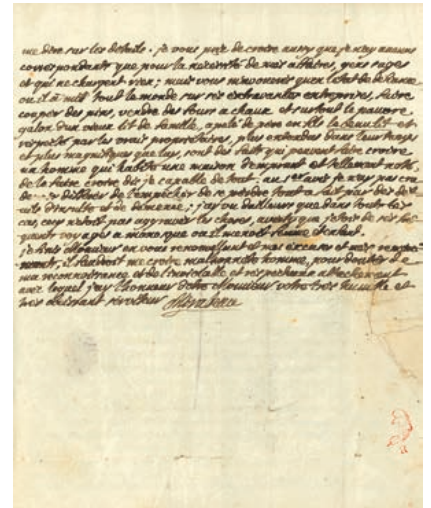 me dire sur les details. je vous prie de croire aussy que je n'ay aucuns
correspondants que pour la necessité de mes affaires, gens sages
et qui ne chargent rien; mais vous m'avouerés qu'en l'etat de
ou il a mis tout le monde sur ses extravagantes entreprises, faire
couper des pins, vendre des fours a chaux et surtout le pauvre
galon d'un vieux lit de famille, apelé de pere en fils le beau lit et
respecté par les vrais proprietaires, plus entendus dans leur temps
et plus magnifiques que luy, sont des faits qui peuvent faire croire
un homme qui habite une maison d'emprunt et tellement
de la faire croire dis je capable de tout. au 1er avis je n'ay pas cru
de l'empecher de se perdre tout a fait par des
; j'ay vu d'ailleurs que dans tout les
cas, ce n'etoit pas aggraver les choses, averty que j'etois de ses
voyages a manosque ou il menoit
je finis Monsieur en vous renouvellant et mes excuses et mes
, il faudroit me croire malhonneste homme, pour douter de
ma reconnoissance et de l'inviolable et respectueux attachement
avec lequel j'ay l'honneur d'etre Monsieur votre tres humble et
tres obeissant serviteur Mirabeau